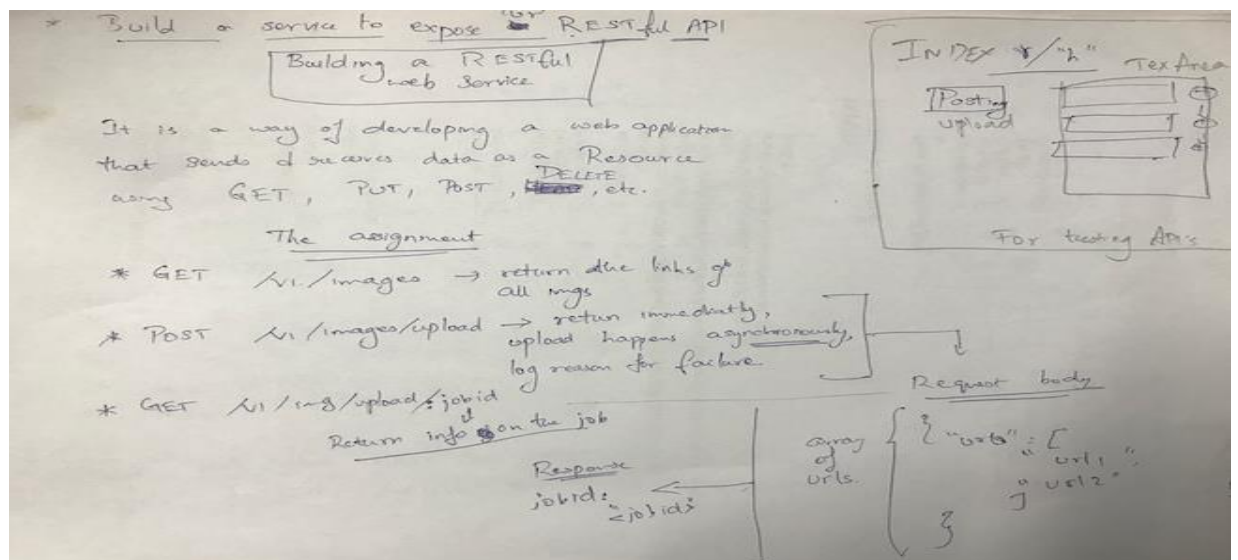 * Build a service to expose RESTful API
Building a RESTful
web Service
It is a way of developing a web application
that sends & receives data as a Resource
using GET, PUT, POST, DELETE, etc.
The assignment
* GET /v1/images → return the links of
all imgs
* POST /v1/images/upload → return immediately,
upload happens asynchronously,
log reason for failure.
* GET /v1/img/upload/:jobid
Return info on the job
Response
jobid:
"<jobid>"
INDEX "/"
TexArea
Posting
upload
For testing API's
Request body
array
of
urls.
{ "urls": [
"url1",
"url2"
]
}